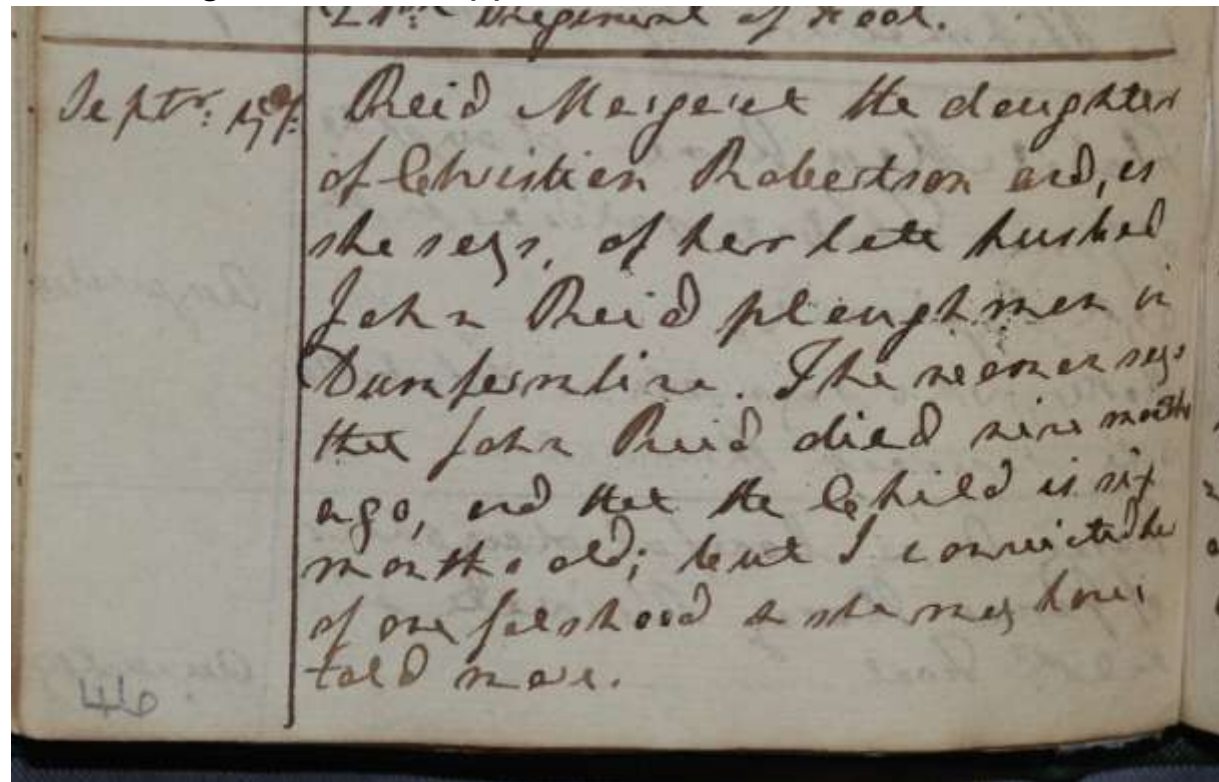 Regiment of Foot.
Septr:
Reid Margaret the daughter
of Christian Robertson and, as
she says, of her late husband
John Reid ploughman in
Dumfermline. The woman says
that John Reid died nine months
ago, and that the Child is six
months old; but I convicted her
of one falshood & she may have
told more.
46